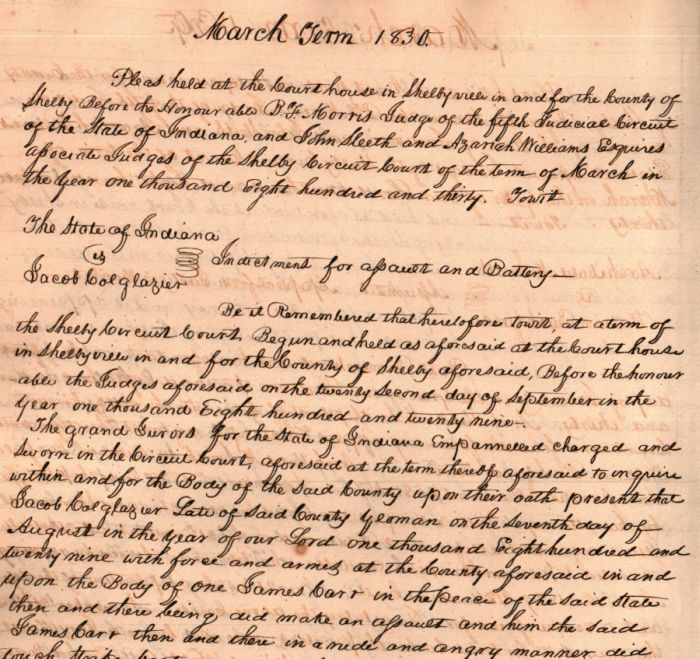 March Term 1830.
Pleas held at the Court house in Shelbyville in and for the County of
Shelby Before the Honourable B. F. Morris Judge of the fifth Judicial Circuit
of the State of Indiana, and John Sleeth and Azariah Williams Esquires
associate Judges of the Shelby Circuit Court of the term of March in
the Year one thousand Eight hundred and thirty. Towit
The State of Indiana
vs
Indictment for assault and Battery—
Jacob Colglazier
Be it Remembered that heretofore towit at a term of
the Shelby Circuit Court, Begun and held as aforesaid at the Court house
in Shelbyville in and for the County of Shelby aforesaid, Before the honour
able the Judges aforesaid on the twenty second day of September in the
Year one thousand Eight hundred and twenty nine—.
The grand Jurors for the State of Indiana Empannelled charged and
Sworn in the Circuit Court, aforesaid at the term thereof aforesaid to inquire
within and for the Body of the said County upon their oath present that
Jacob Colglazier Late of said County Yeoman on the seventh day of
August in the Year of our Lord one thousand Eight hundred and
twenty nine with force and arms, at the County aforesaid in and
upon the Body of one James Carr in the peace of the said State
then and there being did make an assault and him the said
James Carr then and there in a rude and angry manner did
touch Strike beat